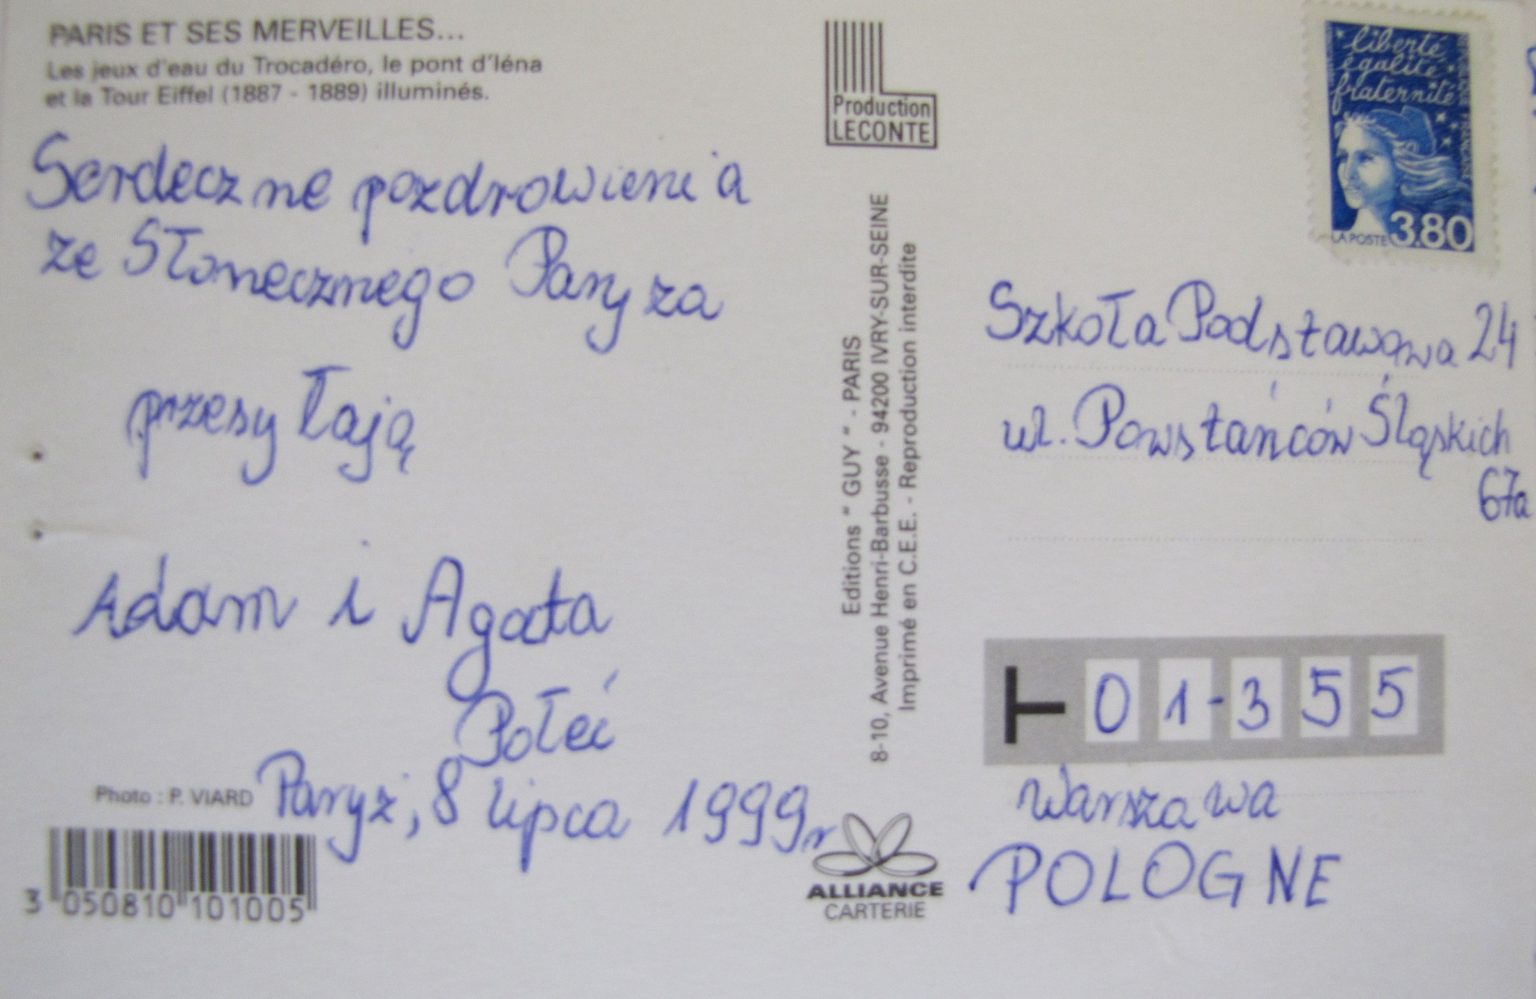 PARIS ET SES MERVEILLES...
Les jeux d'eau du Trocadéro, le pont d'Iéna
et la Tour Eiffel (1887 - 1889) illuminés.
Serdeczne pozdrowienia
ze Słonecznego Paryża
przesyłają
Adam i Agata
Połeć
Paryż, 8 lipca 1999r
Photo : P. VIARD
3 050810 101005
Production
LECONTE
Editions " GUY " - PARIS
8-10, Avenue Henri-Barbusse - 94200 IVRY-SUR-SEINE
Imprimé en C.E.E. - Reproduction interdite
ALLIANCE
CARTERIE
liberté
égalité
fraternité
LA POSTE 3.80
Szkoła Podstawowa 24
ul. Powstańców Śląskich
67a
01-355
Warszawa
POLOGNE